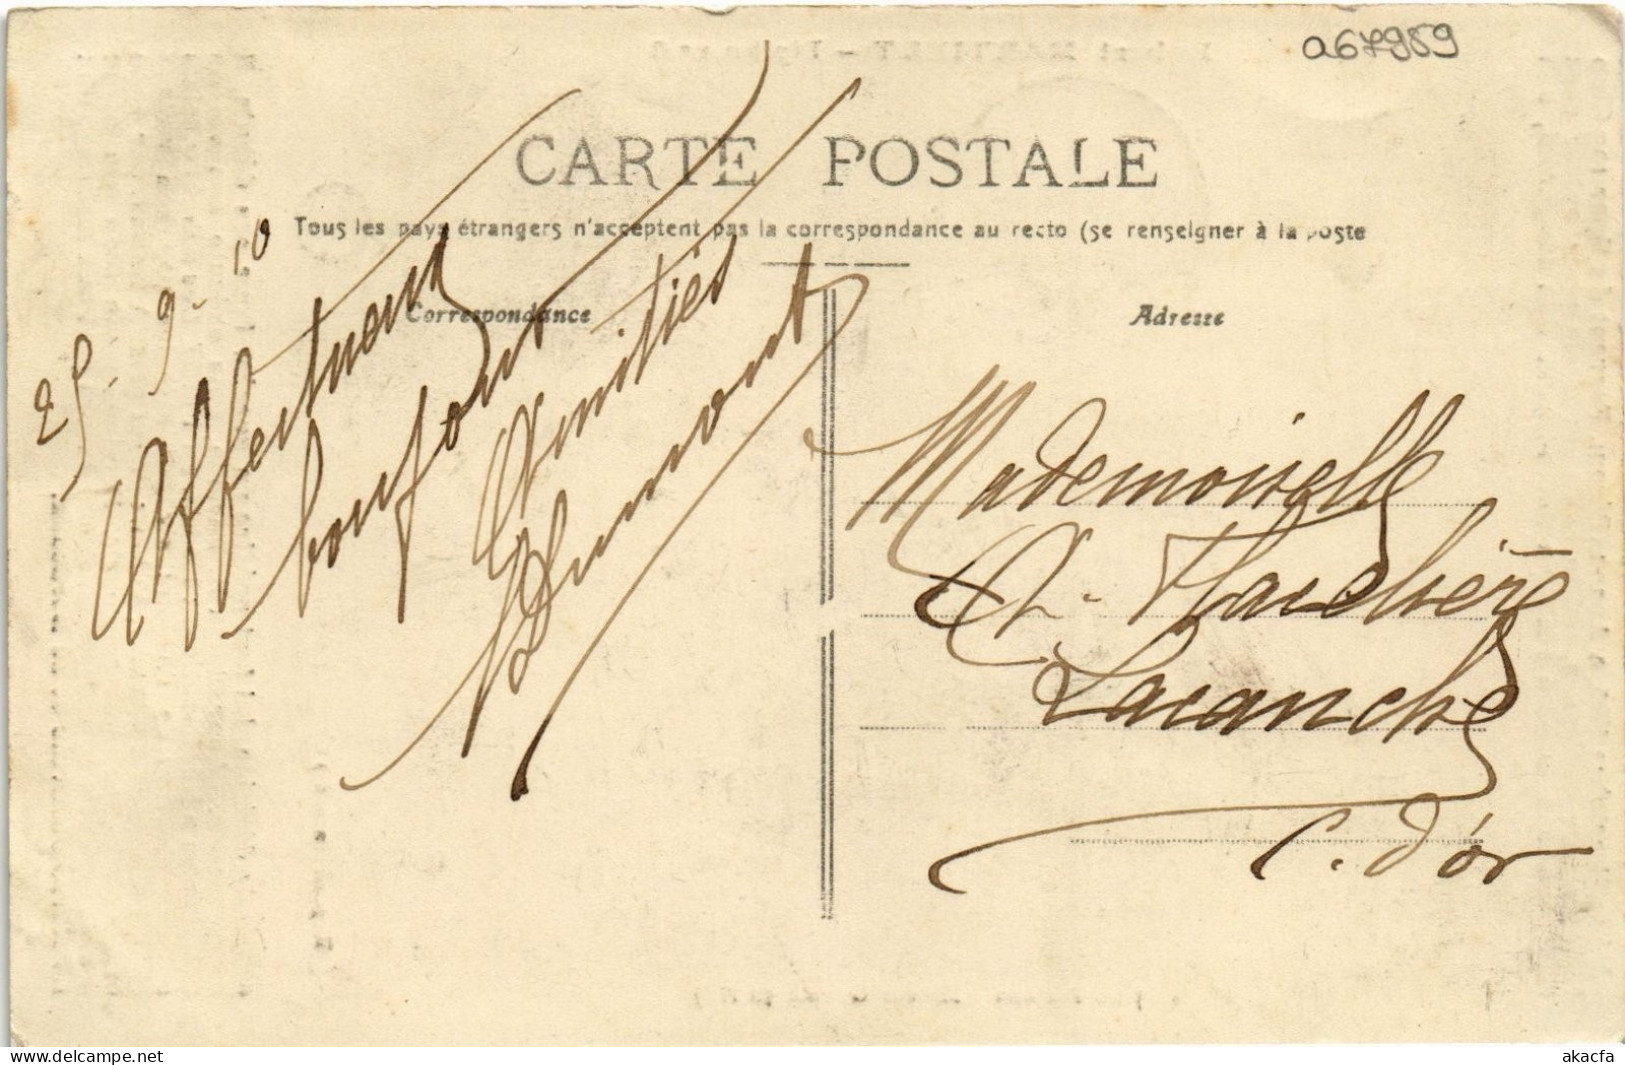 a67959
CARTE POSTALE
Tous les pays étrangers n'acceptent pas la correspondance au recto (se renseigner à la poste
Correspondance
Adresse
25-9-10
Affectueux
bonjour
Amitiés
Dumont
Mademoiselle
A. Flachère
Lacanche
C. d'or
www.delcampe.net
akacfa